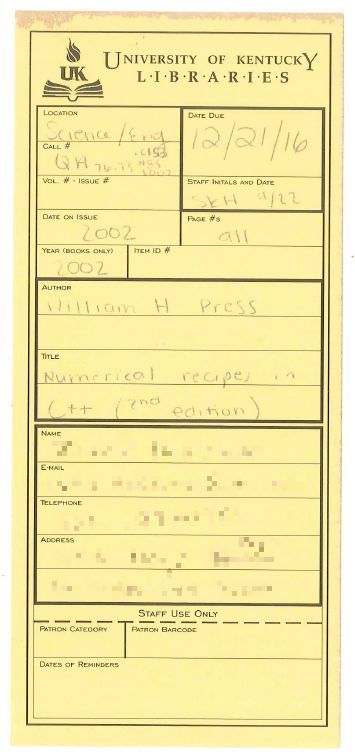 UK
UNIVERSITY OF KENTUCKY
L·I·B·R·A·R·I·E·S
LOCATION
Science/Eng
DATE DUE
12/21/16
CALL #
QA 76.73 .C153
N85
2002
VOL. # - ISSUE #
STAFF INITALS AND DATE
SKH 9/22
DATE ON ISSUE
2002
PAGE #S
all
YEAR (BOOKS ONLY)
2002
ITEM ID #
AUTHOR
William H Press
TITLE
Numerical recipes in
C++ (2nd edition)
NAME
E-MAIL
TELEPHONE
ADDRESS
STAFF USE ONLY
PATRON CATEGORY
PATRON BARCODE
DATES OF REMINDERS